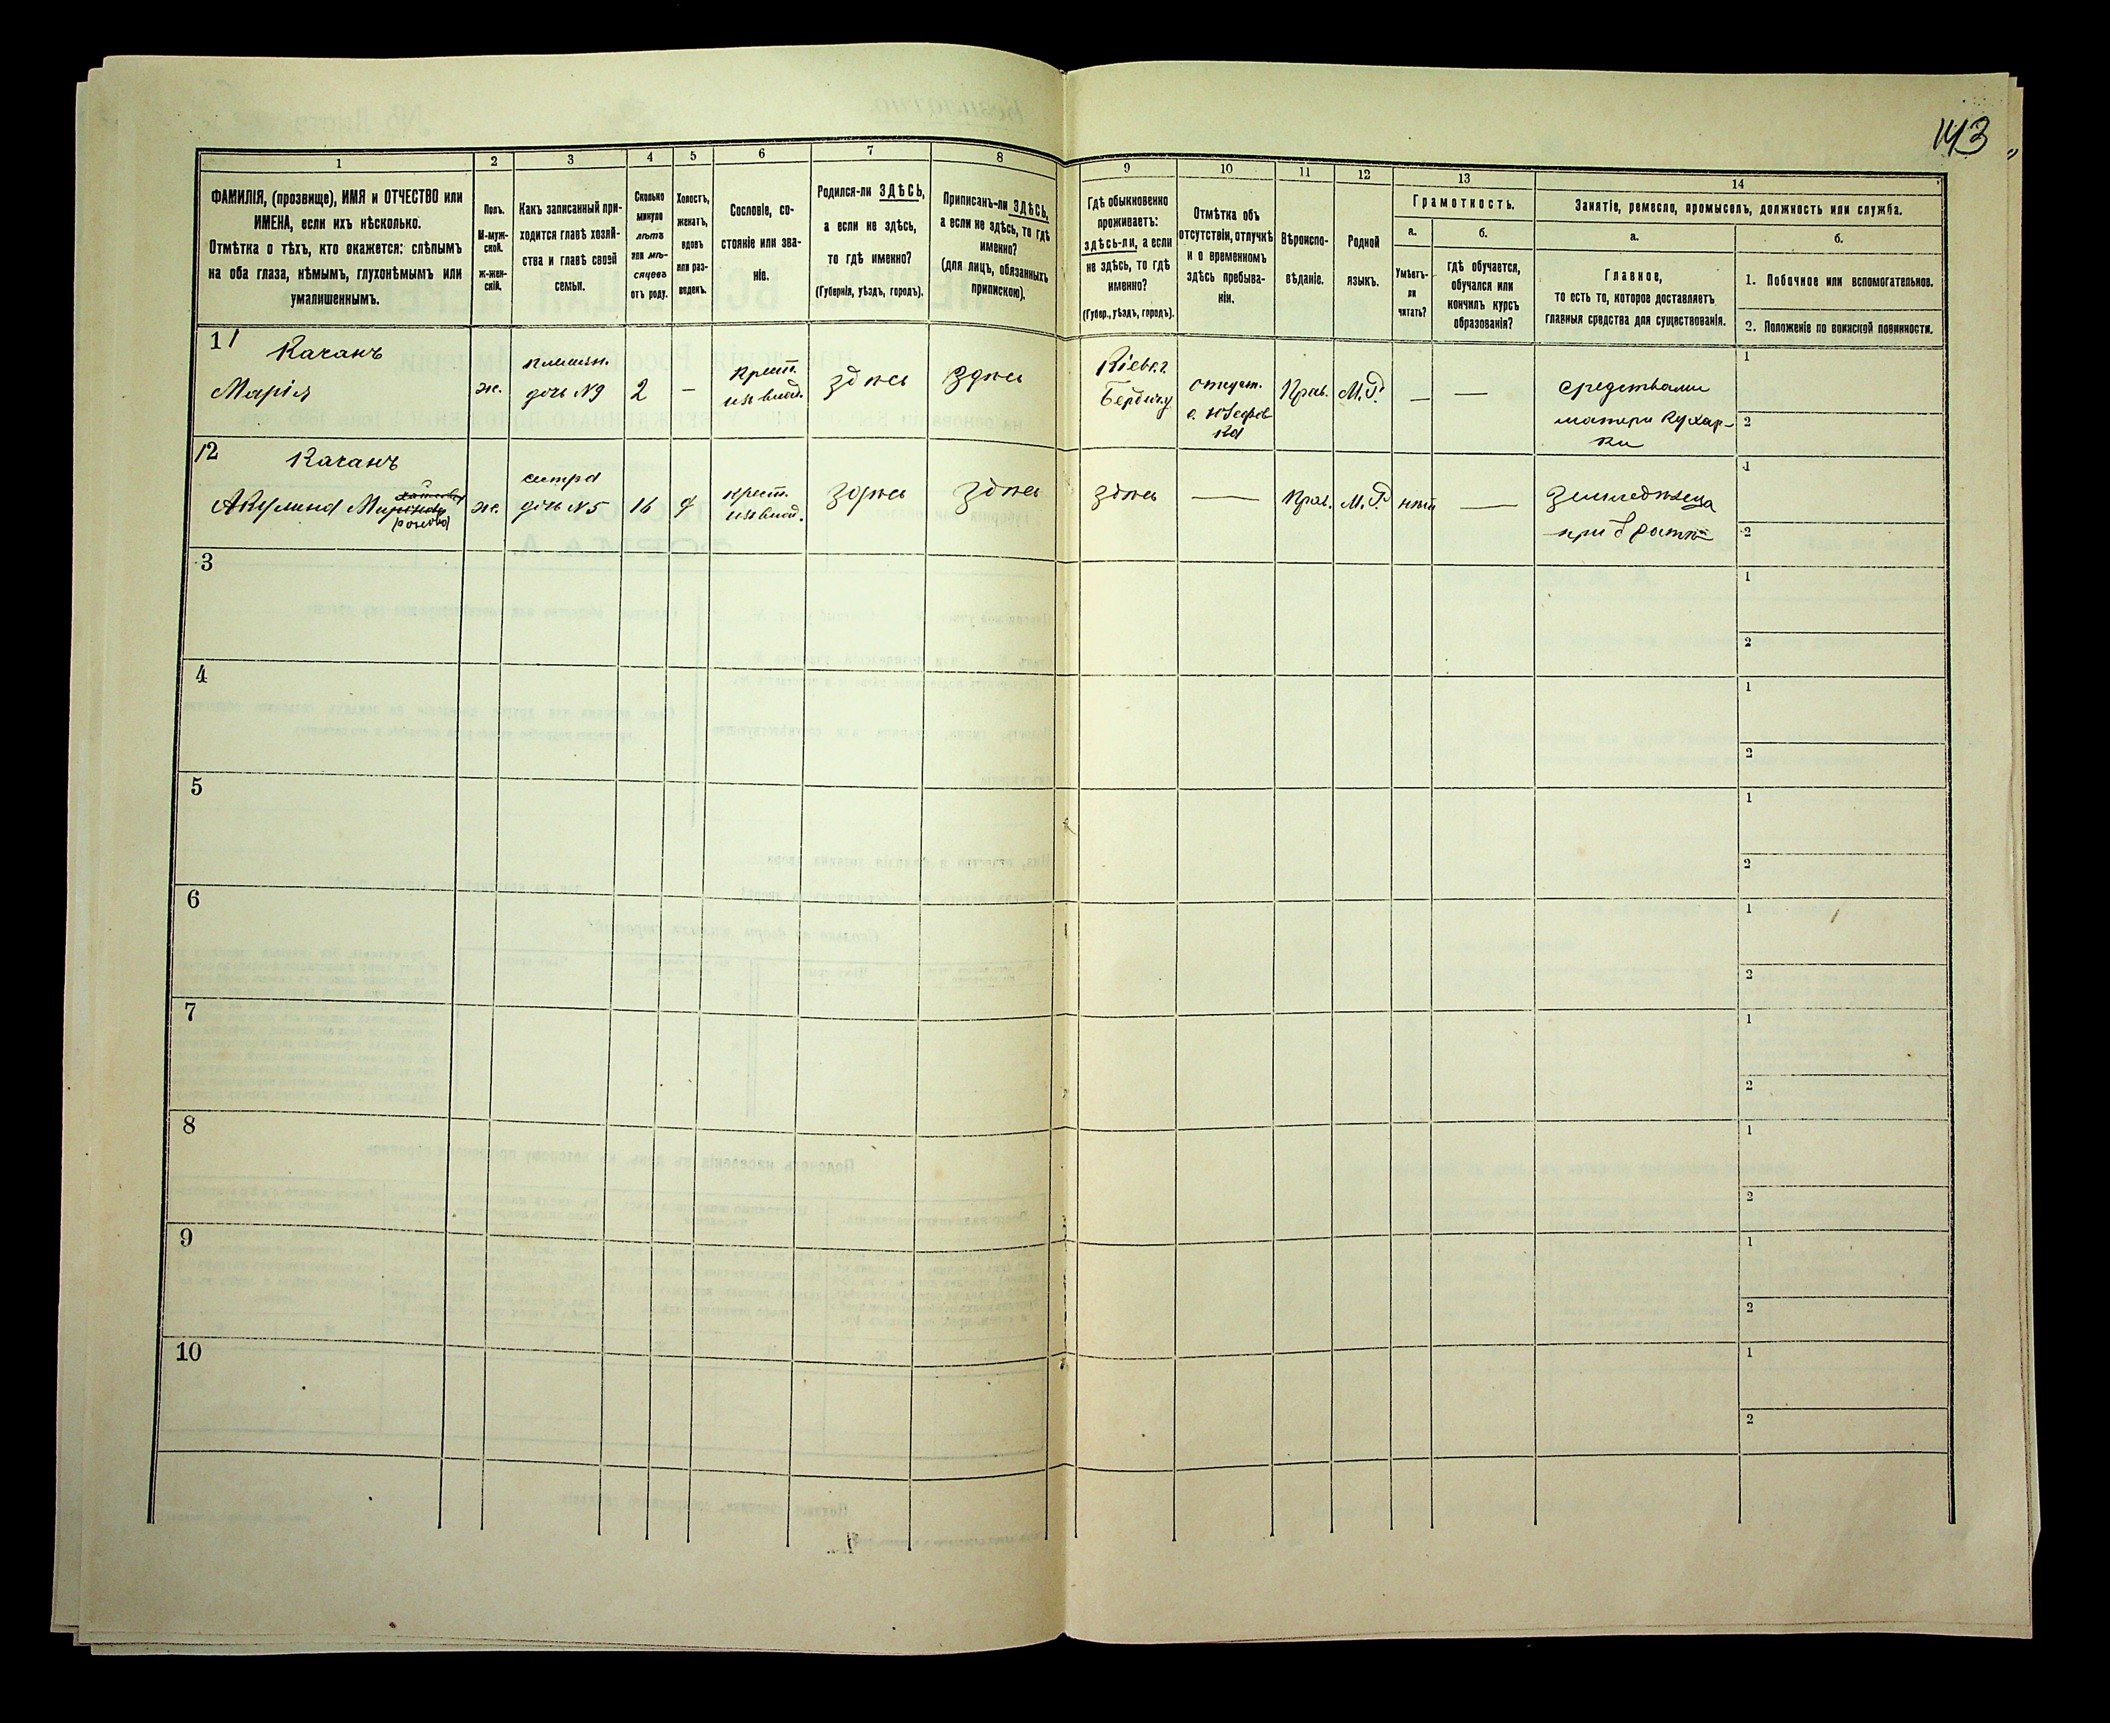 143
1
2
3
4
5
6
7
8
9
10
11
12
13
14
ФАМИЛІЯ, (прозвище), ИМЯ и ОТЧЕСТВО или
ИМЕНА, если ихъ нѣсколько.
Отмѣтка о тѣхъ, кто окажется: слѣпымъ
на оба глаза, нѣмымъ, глухонѣмымъ или
умалишеннымъ.
Полъ.
М-муж-
ской.
ж-жен-
скій.
Какъ записанный при-
ходится главѣ хозяй-
ства и главѣ своей
семьи.
Сколько
минуло
лѣтъ
или мѣ-
сяцевъ
отъ роду.
Холостъ,
женатъ,
вдовъ
или раз-
веденъ.
Сословіе, со-
стояніе или зва-
ніе.
Родился-ли ЗДѢСЬ,
а если не здѣсь,
то гдѣ именно?
(Губернія, уѣздъ, городъ).
Приписанъ-ли ЗДѢСЬ,
а если не здѣсь, то гдѣ
именно?
(для лицъ, обязанныхъ
припискою).
Гдѣ обыкновенно
проживаетъ:
здѣсь-ли, а если
не здѣсь, то гдѣ
именно?
(Губер., уѣздъ, городъ).
Отмѣтка объ
отсутствіи, отлучкѣ
и о временномъ
здѣсь пребыва-
ніи.
Вѣроиспо-
вѣданіе.
Родной
языкъ.
Грамотность.
а.
б.
Умѣетъ-
ли
читать?
гдѣ обучается,
обучался или
кончилъ курсъ
образованія?
Занятіе, ремесло, промыселъ, должность или служба.
а.
б.
Главное,
то есть то, которое доставляетъ
главныя средства для существованія.
1. Побочное или вспомогательное.
2. Положеніе по воинской повинности.
11 Качанъ
Марія
ж.
племян.
дочь №9
2
—
крест.
изъ влад.
здѣсь
здѣсь
Кіевс. г.
Бердич. у
отсут.
Прав.
М. Р.
—
—
средствами
матери кухар-
ки
1
2
12 Качанъ
Акулина Ми
ронова
ж.
сестра
дочь №5
16
д
крест.
изъ влад.
здѣсь
здѣсь
здѣсь
—
Прав.
М. Р.
нѣтъ
—
Земледѣлица
при братѣ
1
2
3
1
2
4
1
2
5
1
2
6
1
2
7
1
2
8
1
2
9
1
2
10
1
2